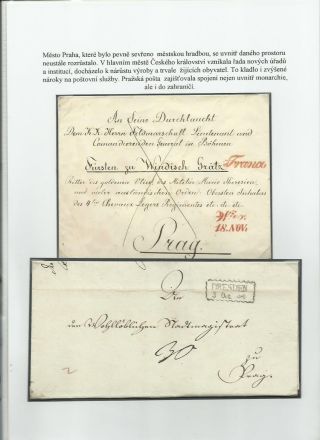 Město Praha, které bylo pevně sevřeno městskou hradbou, se uvnitř daného prostoru
neustále rozrůstalo. V hlavním městě Českého království vznikala řada nových úřadů
a institucí, docházelo k nárůstu výroby a trvale žijících obyvatel. To kladlo i zvýšené
nároky na poštovní služby. Pražská pošta zajišťovala spojení nejen uvnitř monarchie,
ale i do zahraničí.
An Seine Durchlaucht
Dem K.K. Herrn Feldmarschall Lieutenant und
Commandirenden General in Böhmen
Fürsten zu Windisch Grätz
Franco
Ritter des goldenen
und
18. NOV.
Prag.
DRESDEN
Die
den Wohllöblichen Stadtmagistrat
30
zu
Prag.
2